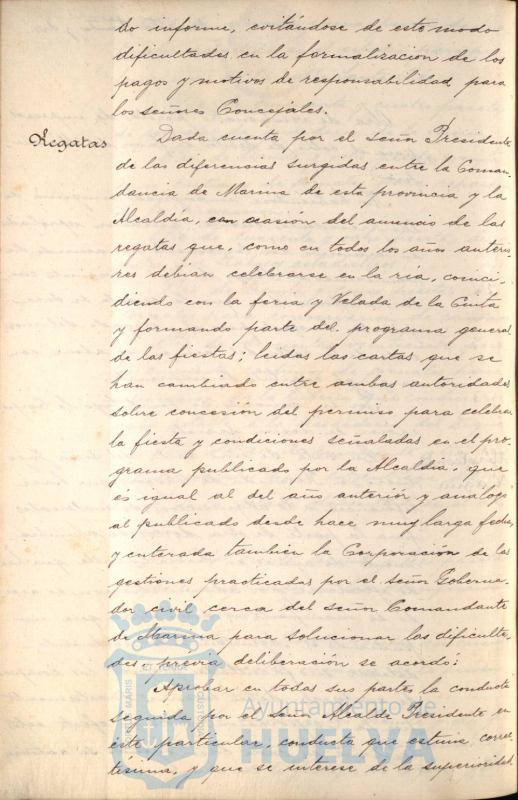 do informe, evitándose de este modo
dificultades en la formalización de los
pagos y motivos de responsabilidad para
los señores Concejales.
Regatas
Dada cuenta por el señor Presidente
de las diferencias surgidas entre la Coman-
dancia de Marina de esta provincia y la
Alcaldía, con ocasión del anuncio de las
regatas que, como en todos los años anterio-
res debían celebrarse en la ría, coinci-
diendo con la feria y Velada de la Cinta
y formando parte del programa general
de las fiestas; leídas las cartas que se
han cambiado entre ambas autoridades
sobre concesión del permiso para celebrar
la fiesta y condiciones señaladas en el pro-
grama publicado por la Alcaldía, que
és igual al del año anterior y analogo
al publicado desde hace muy larga fecha,
y enterada también la Corporación de las
gestiones practicadas por el señor Goberna-
dor civil cerca del señor Comandante
de Marina para solucionar las dificulta-
des previa deliberación se acordó:
Aprobar en todas sus partes la conducta
seguida por el señor Alcalde Presidente en
éste particular, conducta que estima correc-
tísima, y que se interese de la superioridad
Ayuntamiento de
HUELVA